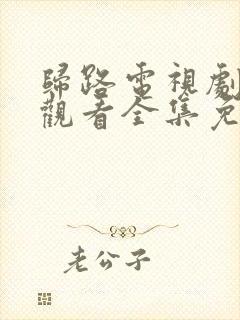 歸路電視劇
觀看全集免
老公子